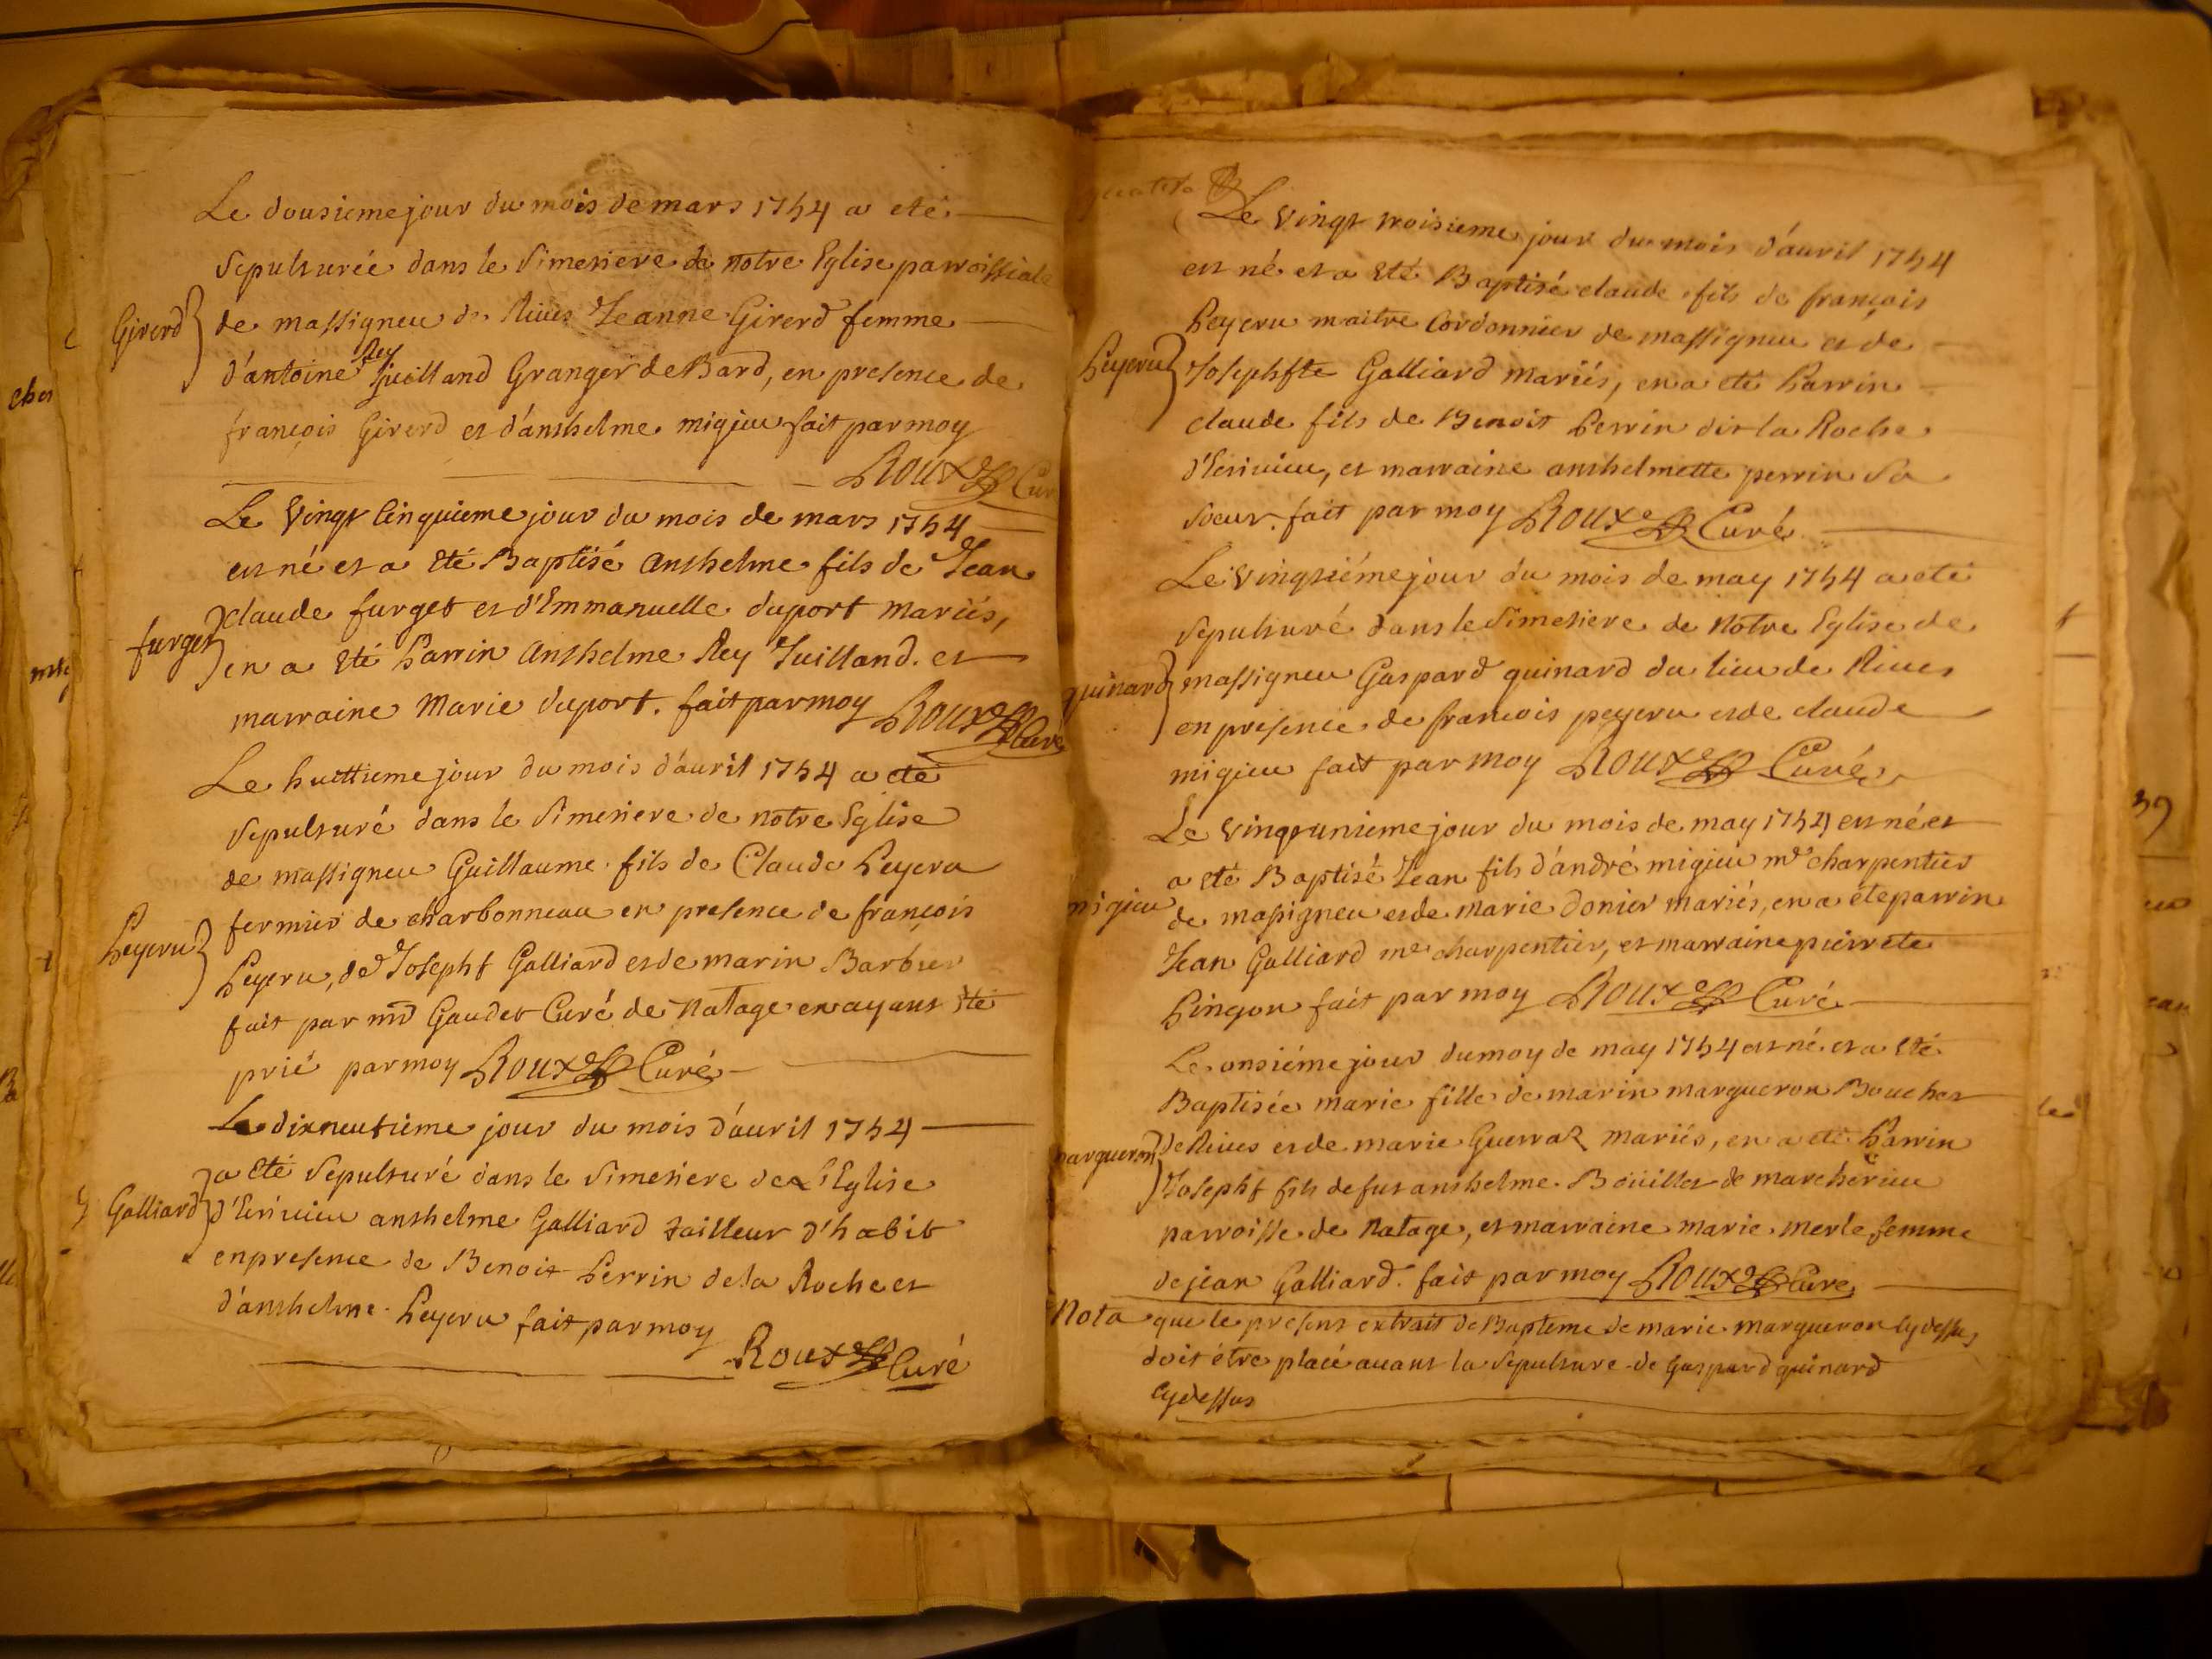 Le dousieme jour du mois de mars 1754 a eté
sepulturée dans le simetiere de notre Eglise parroissiale
Girerd
de massigneu de Rives Jeanne Girerd femme
d'antoine Rey Juilland Granger de Bard, en presence de
françois Girerd et d'anthelme migieu fait par moy
Roux Curé
Le vingt cinquieme jour du mois de mars 1754
est né et a eté Baptisé anthelme fils de Jean
furget
claude furget et d'Emmanuelle duport mariés,
en a eté parrin anthelme Rey Juilland. et
marraine Marie duport. fait par moy Roux Curé
Le huittieme jour du mois d'avril 1754 a eté
sepulturé dans le simetiere de notre Eglise
de massigneu Guillaume fils de Claude Peyeru
Peyeru
fermier de charbonneau en presence de françois
Peyeru, de Joseph Galliard et de marin Barbier
fait par mr Gaudet Curé de Natage en ayant eté
prié par moy Roux Curé
Le dixneufieme jour du mois d'avril 1754
a eté sepulturé dans le simetiere de l'Eglise
Galliard
d'Ecrivieu anthelme Galliard tailleur d'habit
en presence de Benoit Perrin de la Roche et
d'anthelme Peyeru fait par moy
Roux Curé
Le vingt troisieme jour du mois d'avril 1754
est né et a eté Baptisé claude fils de françois
Peyeru maitre Cordonnier de massigneu et de
Peyeru
Josephte Galliard mariés, en a eté parrin
claude fils de Benoit Perrin dit la Roche
d'Ecrivieu, et marraine anthelmette perrin sa
soeur. fait par moy Roux Curé
Le vingtiéme jour du mois de may 1754 a eté
sepulturé dans le simetiere de notre Eglise de
quinard
massigneu Gaspard quinard du lieu de Rives
en présence de francois peyeru et de claude
migieu fait par moy Roux Curé
Le vingt unieme jour du mois de may 1754 est né et
a eté Baptisé Jean fils d'andré migieu me charpentier
migieu
de massigneu et de marie donier mariés, en a éte parrin
Jean Galliard me charpentier, et marraine pierrete
Pingon fait par moy Roux Curé
Le onsiéme jour du moy de may 1754 est né et a eté
Baptisée marie fille de marin margueron Boucher
margueron
de Rives et de marie Guerraz mariés, en a eté parrin
Joseph fils de fut anthelme Boüillet de marcherieu
parroisse de Natage, et marraine marie merle femme
de jean Galliard. fait par moy Roux Curé
Nota que le present extrait de Bapteme de marie margueron cy dessus
doit étre placé avant la sepulture de Gaspard quinard
cy dessus